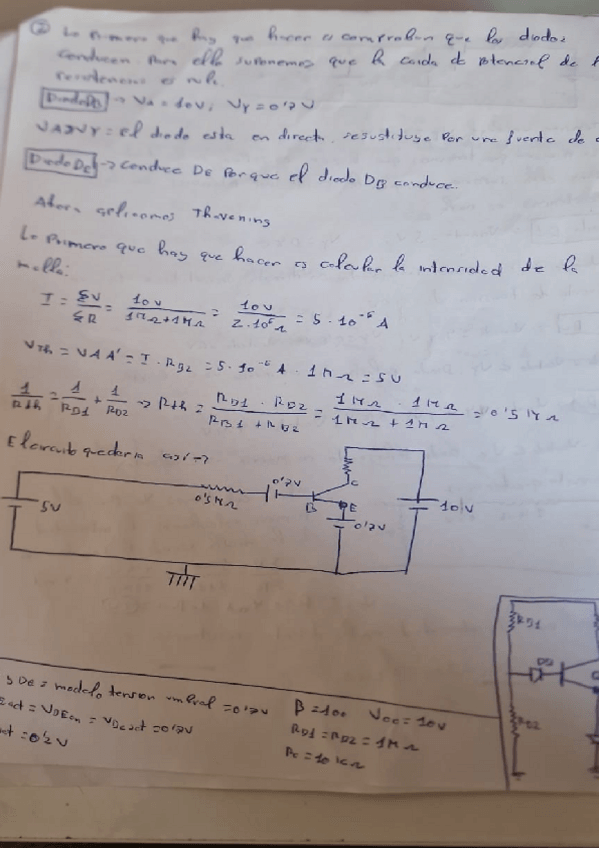 ② Lo primero que hay que hacer es comprobar que los diodos
conducen. Para ello suponemos que la caida de potencial de l
resistencias es nula.
Diodo DB → VA = 10V, Vγ = 0'7V
VA>Vγ = el diodo esta en directa, se sustituye por una fuente de
Diodo DE → conduce DE porque el diodo DB conduce.
Ahora aplicamos Thevening
Lo primero que hay que hacer es calcular la intensidad de la
malla:
I = ΣV/ΣR = 10V/1MΩ+1MΩ = 10V/2·10⁶Ω = 5·10⁻⁶ A
VTh = VAA' = I · RB2 = 5·10⁻⁶ A · 1MΩ = 5V
1/Rth = 1/RB1 + 1/RB2 → Rth = RB1 · RB2/RB1 + RB2 = 1MΩ · 1MΩ/1MΩ + 1MΩ = 0'5 MΩ
El circuito quedaria así →
5V 0'5MΩ 0'7V B C E 0'7V 10V
RB1
DB
RB2
y DE = modelo tension umbral = 0'7V β = 100 Vcc = 10V
act = VBEon = VBEact = 0'7V RB1 = RB2 = 1MΩ
= 0'2V Rc = 10KΩ